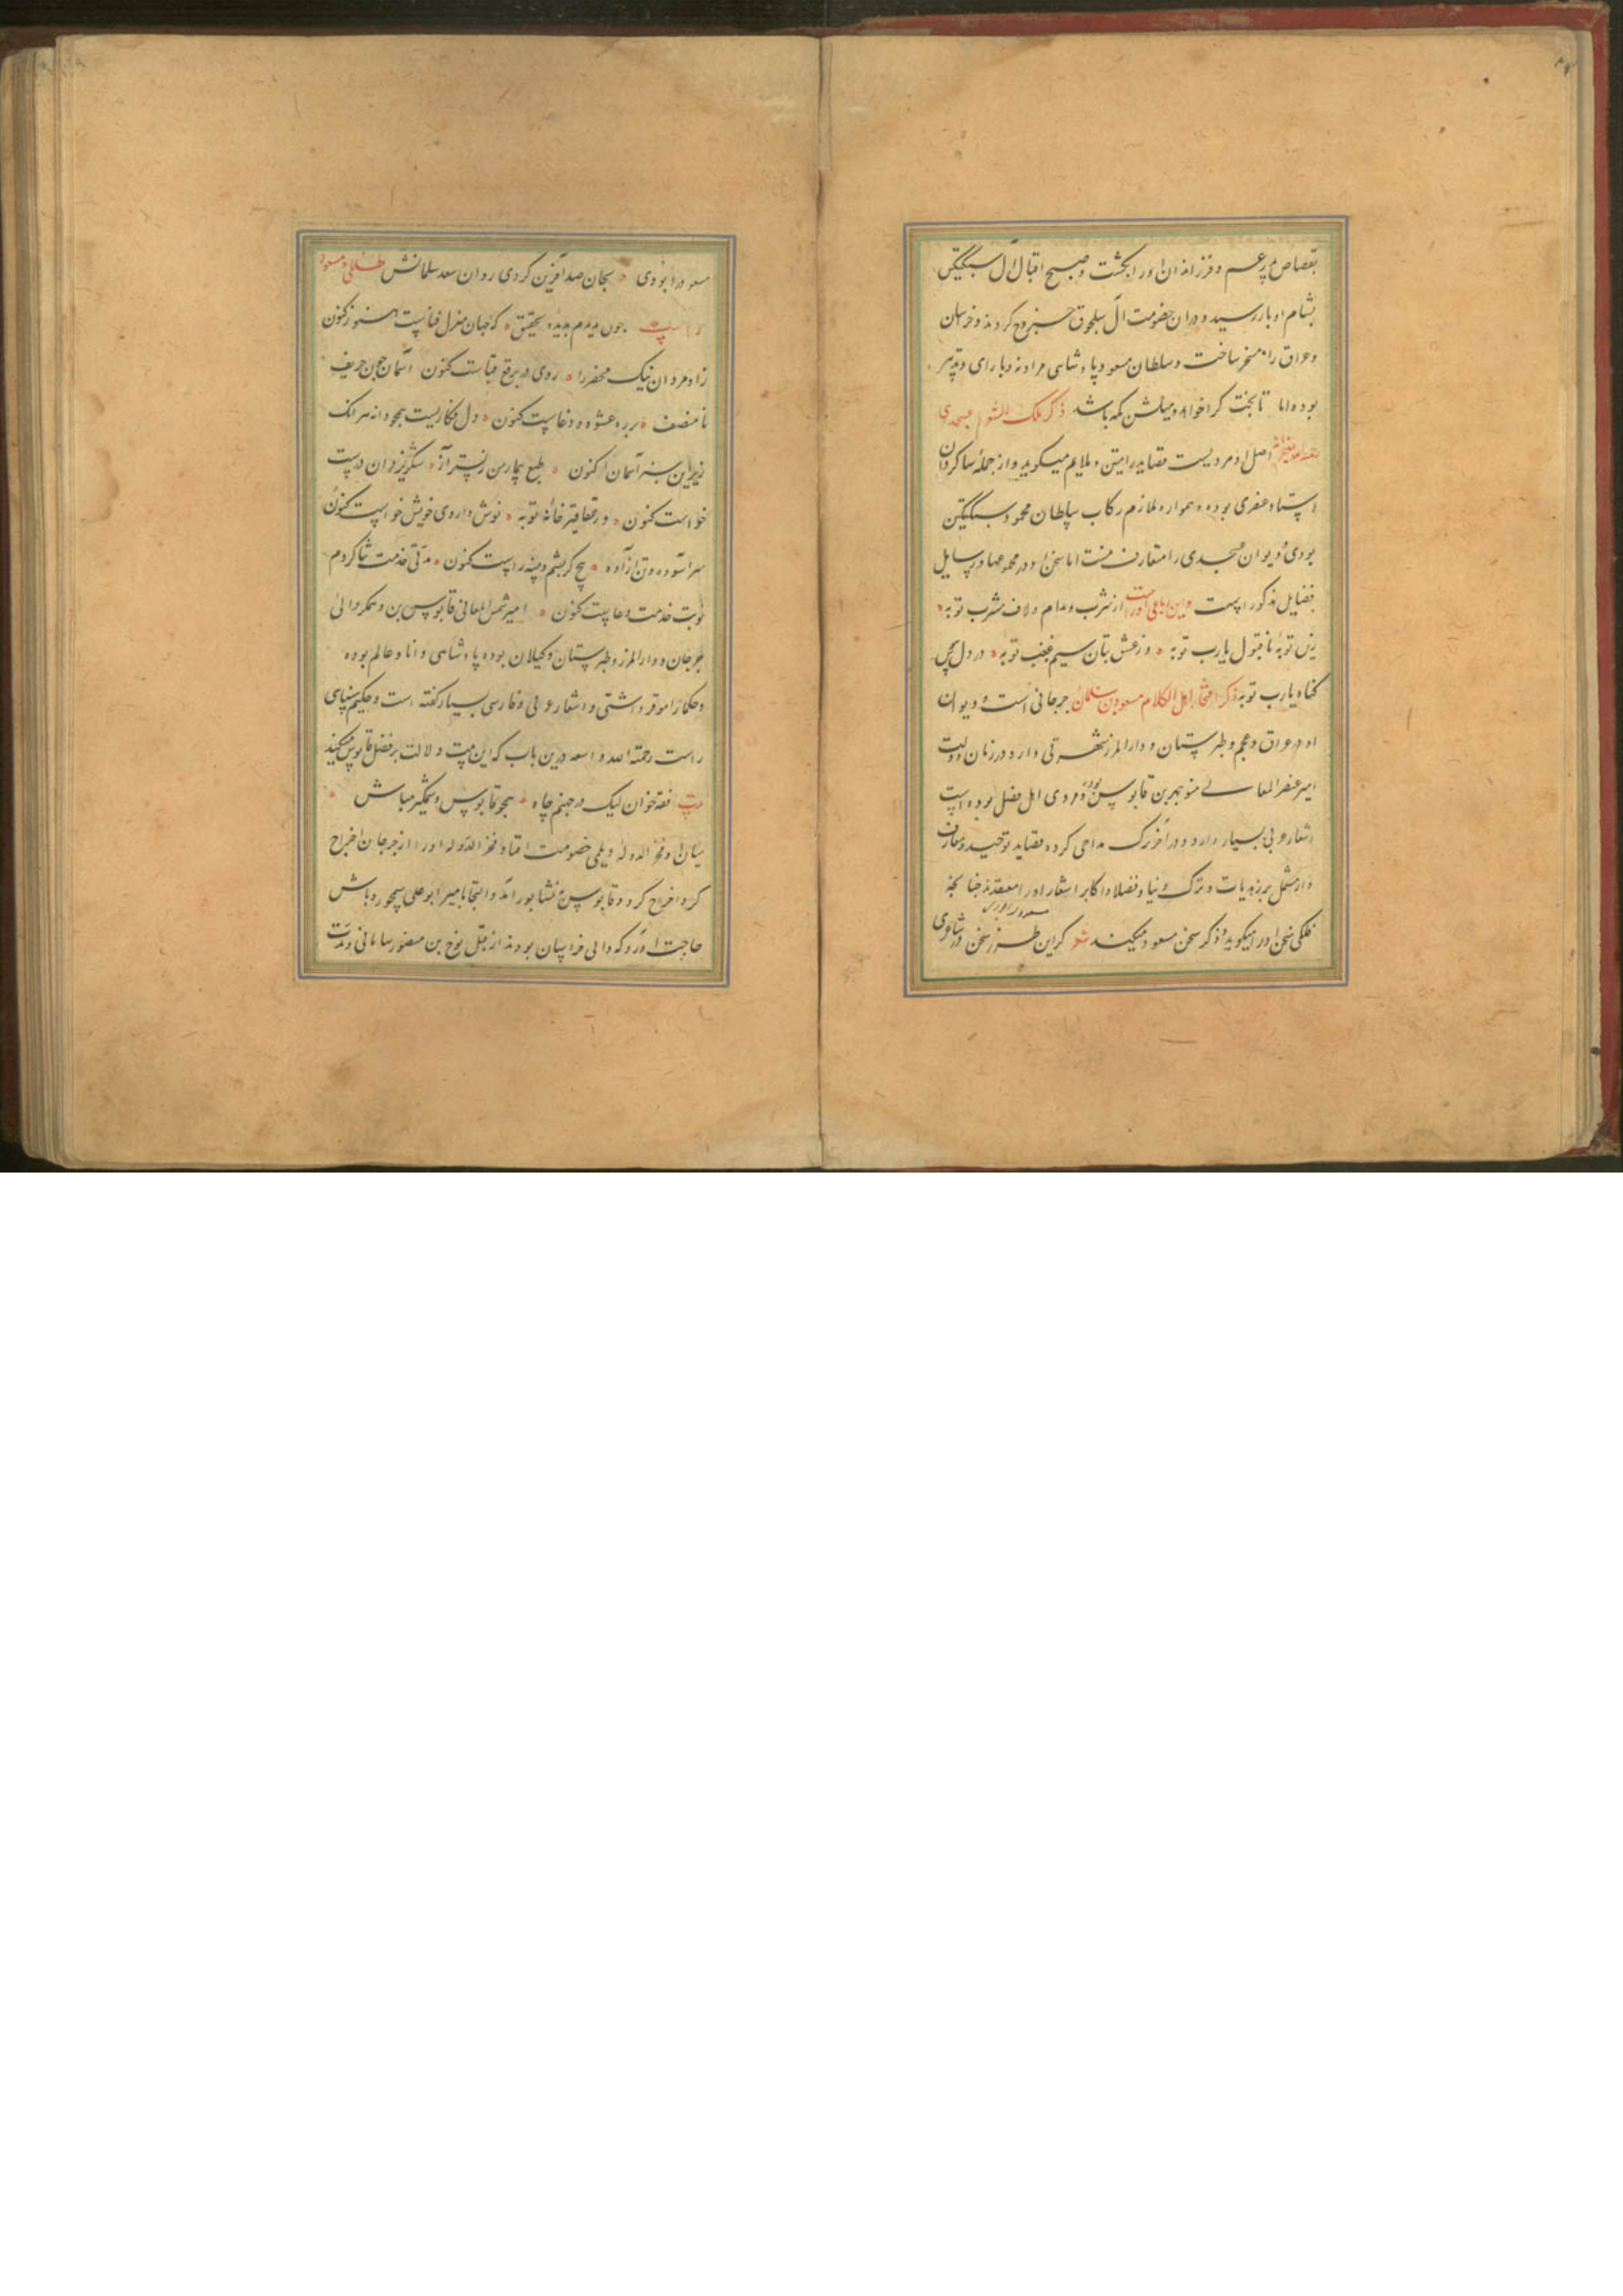 بقصاص پدر عم و فرزندان او را بکشت و صبح اقبال آل سبکتکین
بشام ادبار رسید و دران خصومت آل سلجوق خروج کردند و خراسان
و عراق را مسخر ساخت و سلطان مسعود پادشاهی مردانه و با رای و تدبیر
بوده اما تا بخت کرا خواهد و میلش بکه باشد ذکر ملک الشعرا عسجدی
اصل او مرویست قصاید را متین و ملایم میکوید و از جمله شاکردان
استاد عنصری بوده و همواره ملازم رکاب سلطان محمود سبکتکین
بودی و دیوان عسجدی را متعارف نیست اما سخن او در مجموعها و رسایل
فضایل مذکور است و این رباعی او راست از شرب مدام و لاف مشرب توبه
زین توبه نا قبول یارب توبه وز عشق بتان سیم غبغب توبه در دل هوس
کناه یارب توبه ذکر افتخار اهل الکلام مسعود بن سلمان جرجانی است و دیوان
او در عراق و عجم و طبرستان و دارالمرز شهرتی دارد در زمان دولت
امیر عنصر المعالی منوچهر بن قابوس بوده و مردی اهل فضل بوده است
اشعار عربی بسیار دارد و در آخر ترک مداحی کرده قصاید توحید و معارف
دارد مشتمل بر زهدیات و ترک دنیا و فضلا و اکابر اشعار او را معتقدند چنانکه
فلکی سخن او را میکوید و ذکر سخن مسعود میکند شعر کر این طرز سخن در شاعری
مسعود را بودی
مسعود را بودی بجان صد آفرین کردی روان سعد سلمانش
چون بدیدم بدیده تحقیق که جهان منزل فناست کنون
زاد مردان نیک محضر را روی در برقع فناست کنون آسمان چون حریف
نا منصف بر ره عشوه و دغاست کنون دل فکاریست همچو دانه مرا تک
زیر این سبز آسمان کنون طبع بیمار من ز بستر آز شکر یزدان درست
خواست کنون در عقاقیر خانه توبه نوش داروی خویش خواست کنون
سر آسوده و تن آزاده پنج کز پشم و پنبه راست کنون مدتی خدمت شما کردم
نوبت خدمت دعاست کنون امیر شمس المعالی قابوس بن وشمکیر والی
جرجان و دارالمرز و طبرستان و کیلان بوده پادشاهی دانا و عالم بوده
و حکما را موقر داشتی و اشعار عربی و فارسی بسیار کفته است و حکیم سنایی
راست رحمة الله و اسعه درین باب که این بیت دلالت بر فضل قابوس میکند
بیت فقه خوان لیک در جهنم چاه همچو قابوس وشمکیر مباش
میان او و فخر الدوله دیلمی خصومت افتاد فخر الدوله او را از جرجان اخراج
کرد اخراج کرد و قابوس به نشابور آمد و التجا بامیر ابو علی سیمجور و باش
حاجت آورد که والی خراسان بودند از قبل نوح بن منصور سامانی و مدت